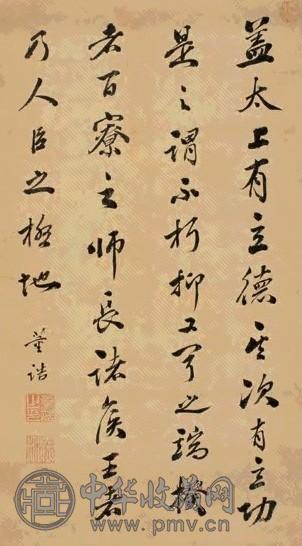 蓋太上有立德其次有立功
是之謂不朽抑又聞之端揆
者百寮之師長諸侯王者
乃人臣之極地
董誥
中华收藏网
www.pmv.cn